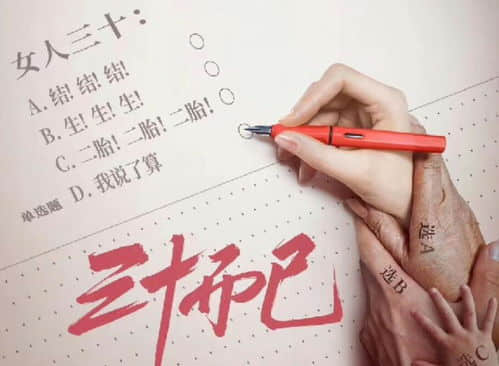 女人三十：
A. 结！结！结！
B. 生！生！生！
C. 二胎！二胎！二胎！
单选题 D. 我说了算
三十而已
选A
选B
选C